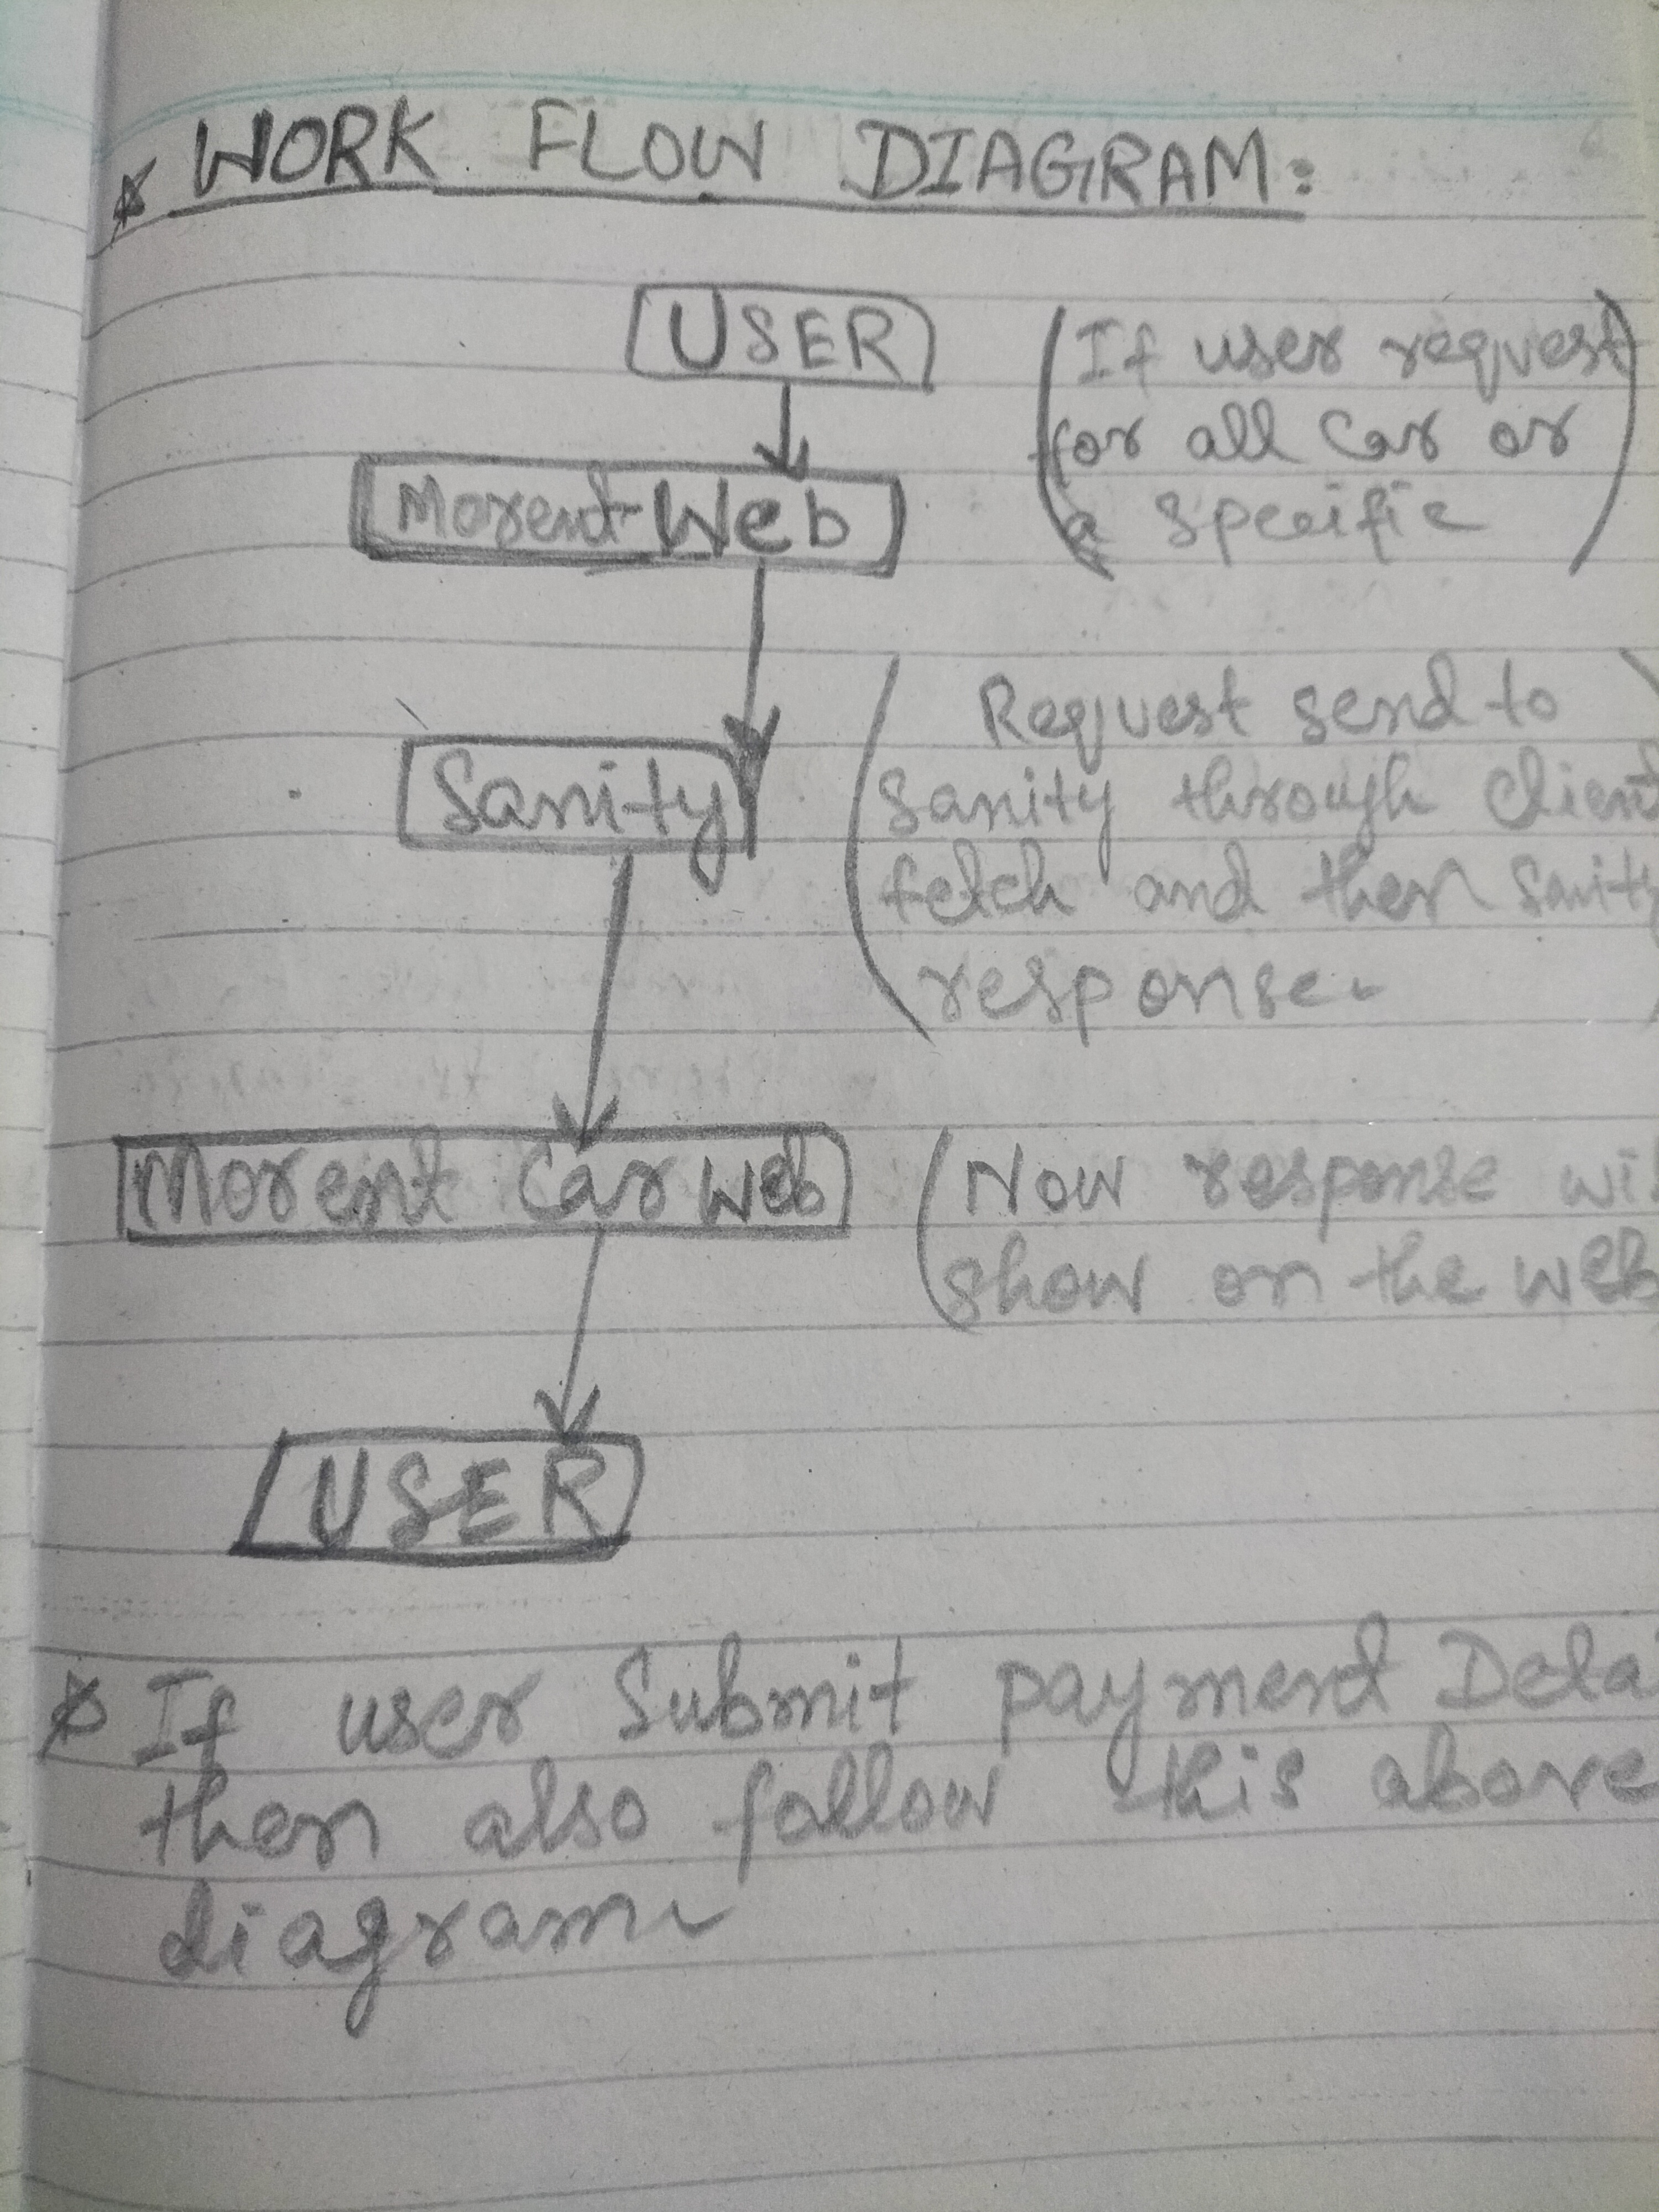 WORK FLOW DIAGRAM:
USER
(If user request
for all Car or
a specific)
Morent Web
(Request send to
Sanity through Client
fetch and then Sanity
response.
Sanity
Morent Car Web
(Now response
show on the web
USER
If user Submit payment
then also follow this above
diagram